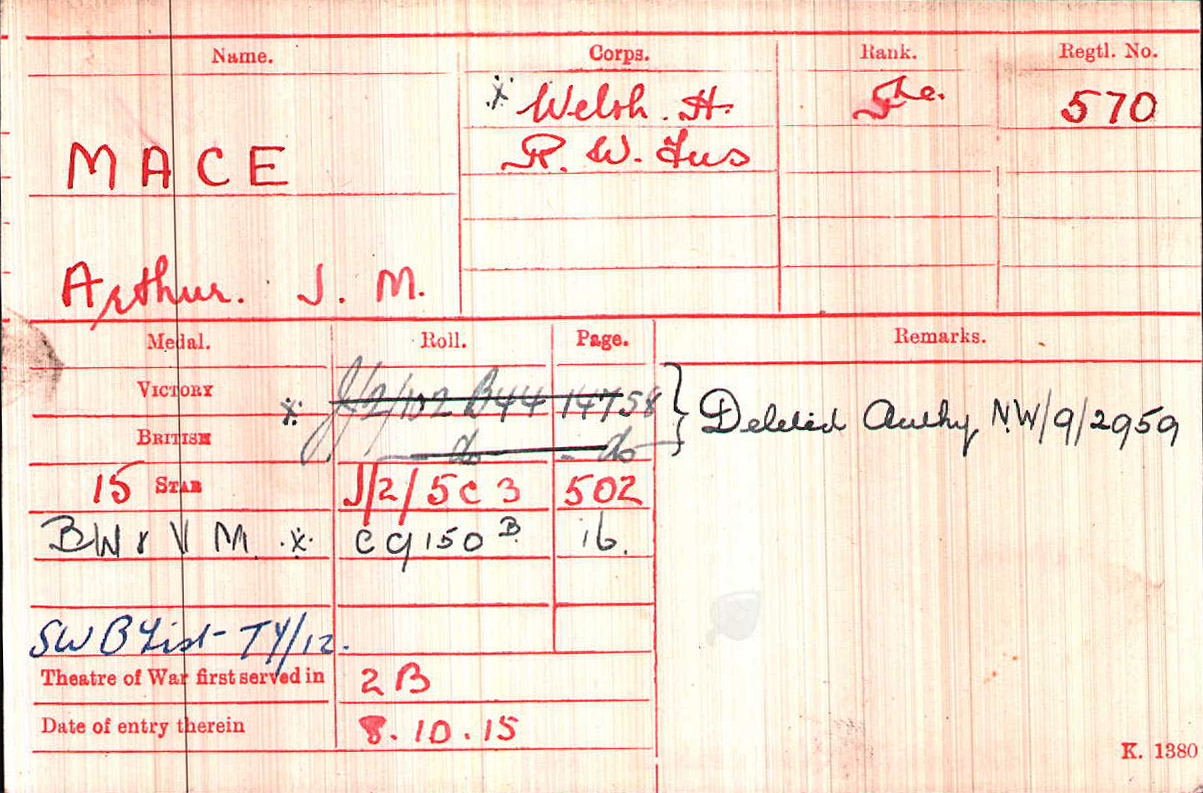 Name. Corps. Rank. Regtl. No.
MACE
Arthur. J. M.
※ Welsh. H. Pte. 570
R. W. Fus
Medal. Roll. Page. Remarks.
VICTORY ※ J/2/102 B44 14758 } Deleted Authy NW/9/2959
BRITISH do do
15 STAR J/2/5C3 502
BW & VM ※ C9150 B. 16.
SWB List TY/12.
Theatre of War first served in 2B
Date of entry therein 8.10.15
K. 1380